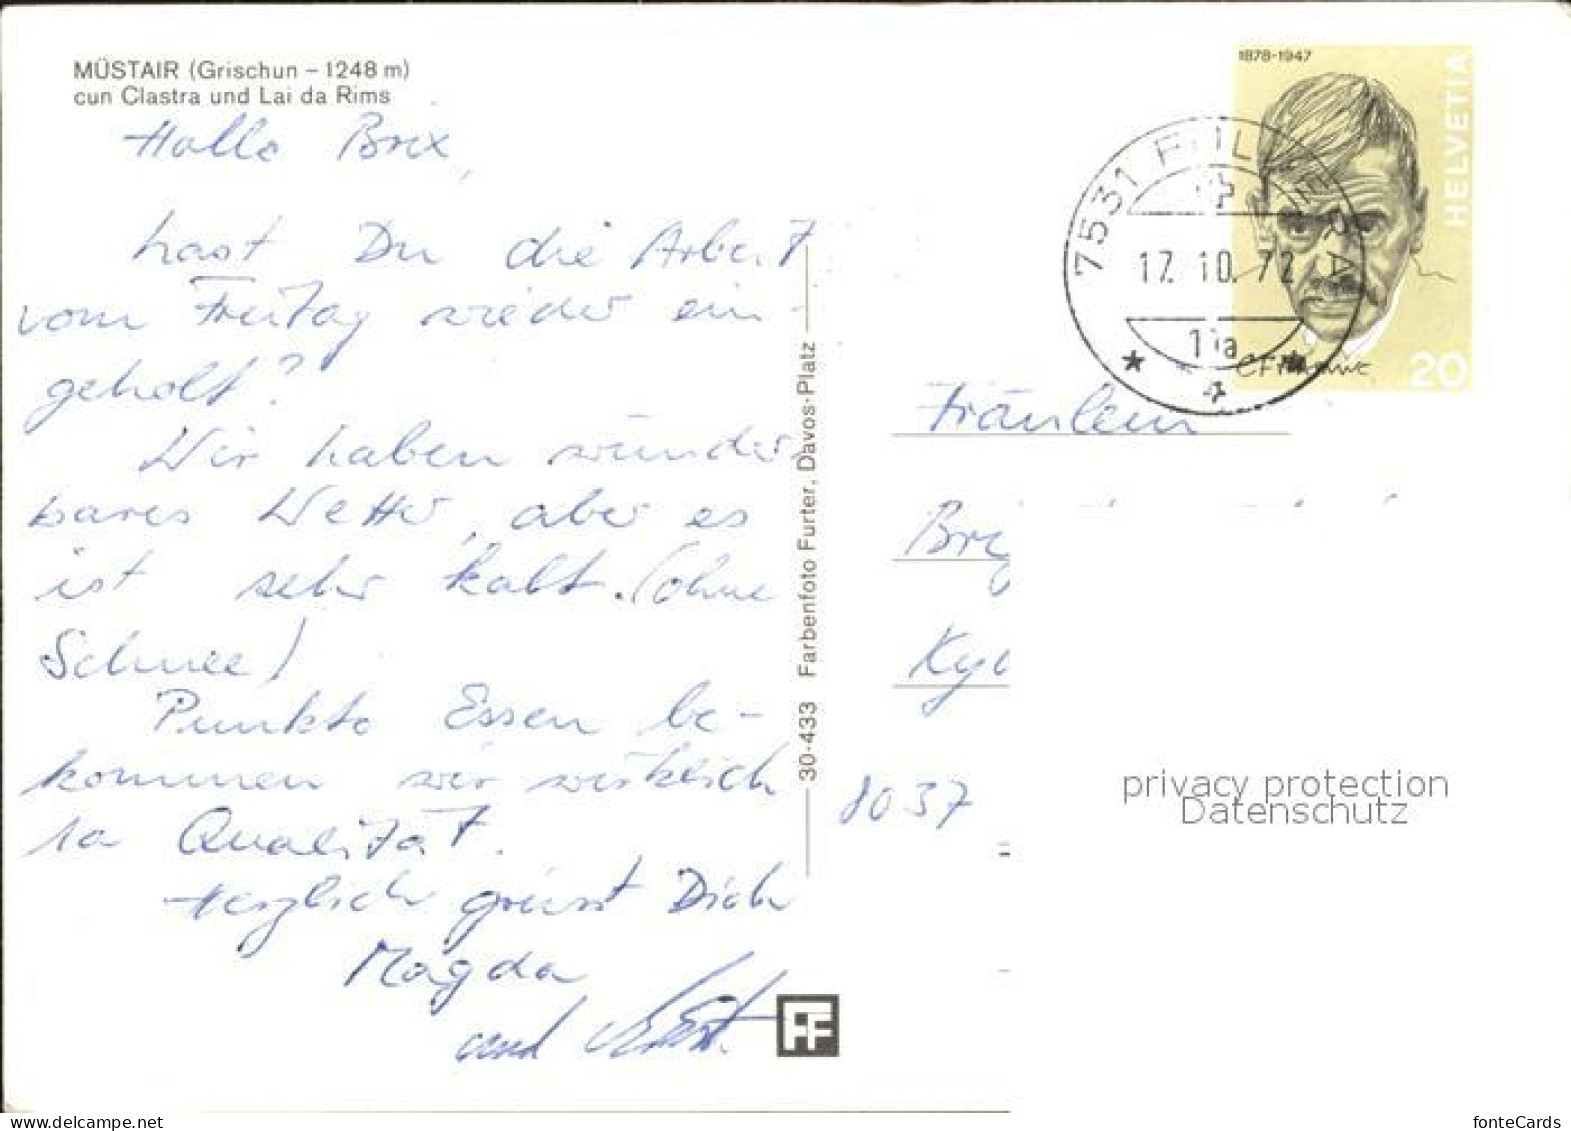 MÜSTAIR (Grischun – 1248 m)
cun Clastra und Lai da Rims
Hallo Brix,
hast Du die Arbeit
vom Freitag wieder ein-
geholt?
Wir haben wunder-
bares Wetter, aber es
ist sehr kalt. (ohne
Schnee)
Punkto Essen be-
kommen wir wirklich
1a Qualität.
Herzlich grüsst Dich
Magda
und
30-433 Farbenfoto Furter, Davos-Platz
FF
1878-1947
HELVETIA
20
7531
17.10.72
Fräulein
8037
privacy protection
Datenschutz
fonteCards